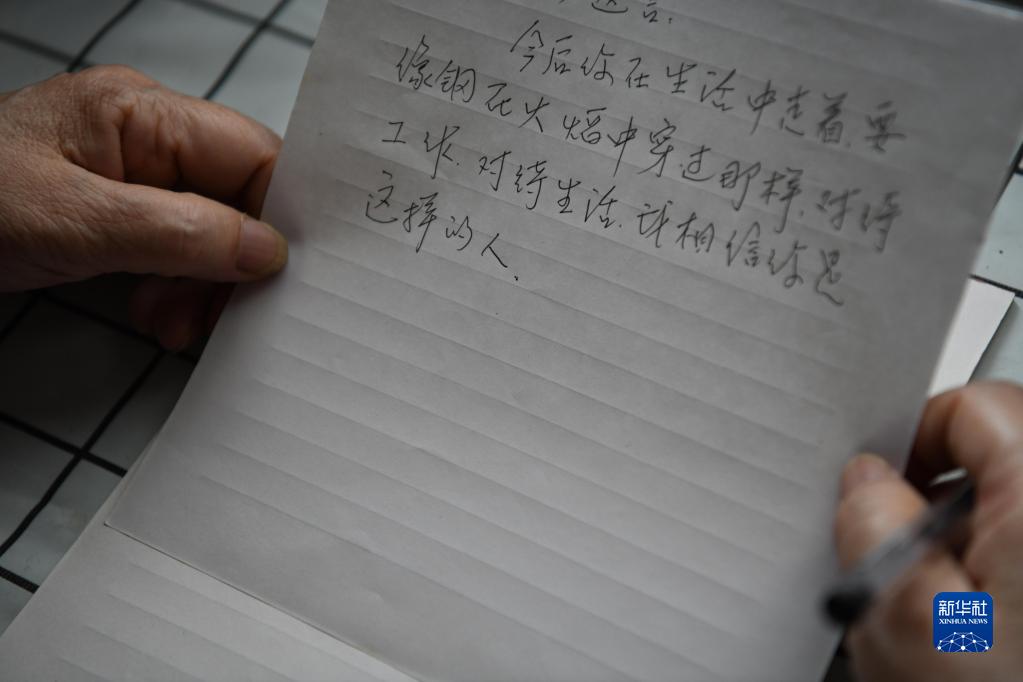 今后你在生活中走着、要
像钢在火焰中穿过那样.对待
工作.对待生活.我相信你是
这样的人.
新华社
XINHUA NEWS